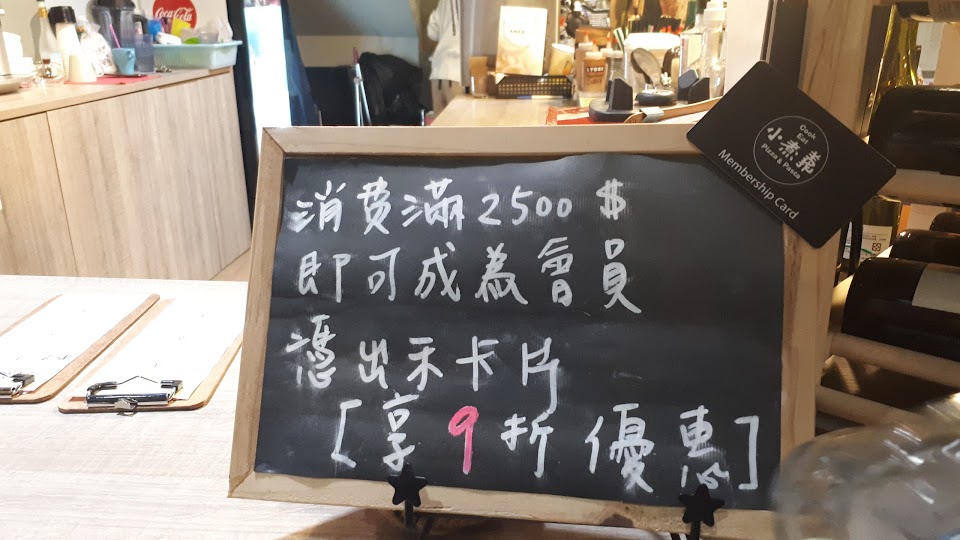 Coca-Cola
消費滿2500$
即可成為會員
憑出示卡片
[享9折優惠]
Cook
Eat
小煮義
Pizza & Pasta
Membership Card